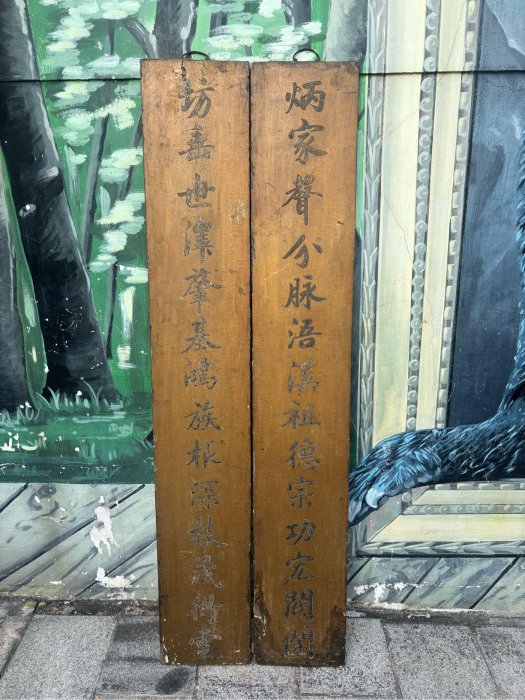 炳家聲分脉浯溪祖德宗功宏閥閱
坊世澤肇基鴻族根深枝茂衍雲